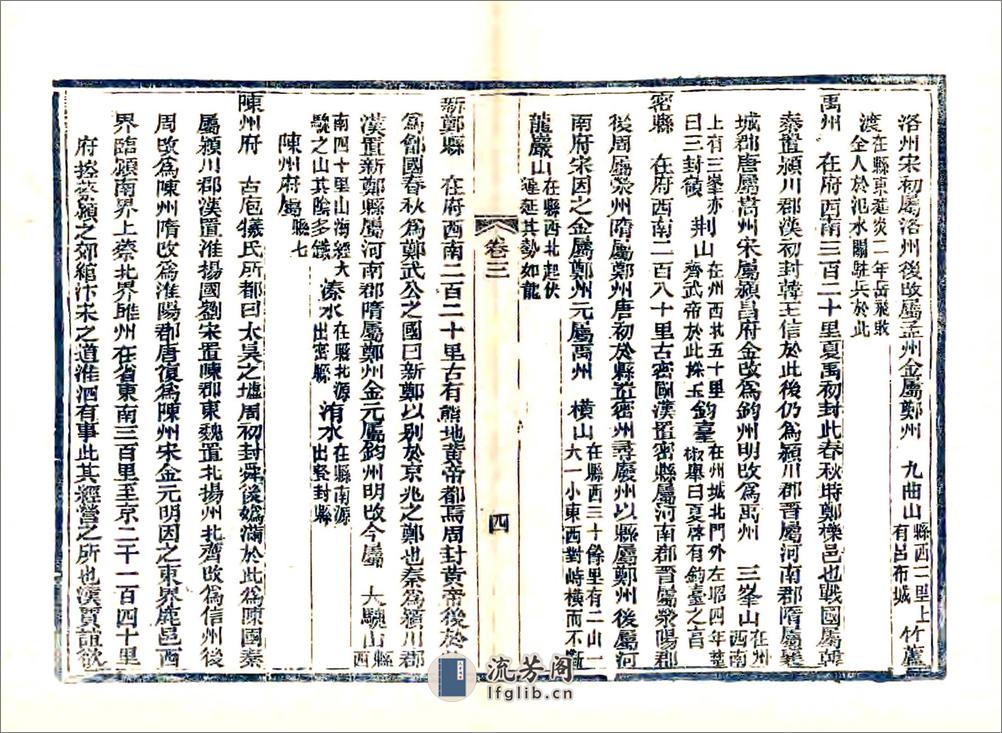 洛州宋初屬洛州後改屬孟州金屬鄭州　九曲山縣西一里上有呂布城　竹蘆
渡在縣東建炎二年岳飛敗金人於汜水關駐兵於此
禹州　在府西南三百二十里夏禹初封此春秋時鄭櫟邑也戰國屬韓
秦置潁川郡漢初封韓王信於此後仍為潁川郡晉屬河南郡隋屬襄
城郡唐屬嵩州宋屬潁昌府金改為鈞州明改為禹州　三峯山在州西南
上有三峯亦曰三封嶺　荆山在州西北五十里齊武帝於此採玉　鈞臺在州城北門外左昭四年楚椒舉曰夏啓有鈞臺之享
密縣　在府西南二百八十里古密國漢置密縣屬河南郡晉屬滎陽郡
後周屬滎州隋屬鄭州唐初於縣置密州尋廢州以縣屬鄭州後屬河
南府宋因之金屬鄭州元屬禹州　橫山在縣西三十餘里有二山一大一小東西對峙橫而不斷
龍巖山在縣西北起伏蜿延其勢如龍
卷三
四
新鄭縣　在府西南二百二十里古有熊地黃帝都焉周封黃帝後於
為鄶國春秋為鄭武公之國曰新鄭以別於京兆之鄭也秦為潁川郡
漢置新鄭縣屬河南郡隋屬鄭州金元屬鈞州明改今屬　大騩山縣西
南四十里山海經大騩之山其陰多鐵　溱水在縣北源出密縣　洧水在縣南源出登封縣
陳州府屬縣七
陳州府　古庖犧氏所都曰太昊之墟周初封舜後媯滿於此為陳國秦
屬潁川郡漢置淮揚國劉宋置陳郡東魏置北揚州北齊改為信州後
周改為陳州隋改為淮陽郡唐復為陳州宋金元明因之東界鹿邑西
界臨潁南界上蔡北界睢州在省東南三百里至京二千一百四十里
府控蔡潁之郊綰汴宋之道淮泗有事此其經營之所也漢賈誼欲
流芳阁
lfglib.cn